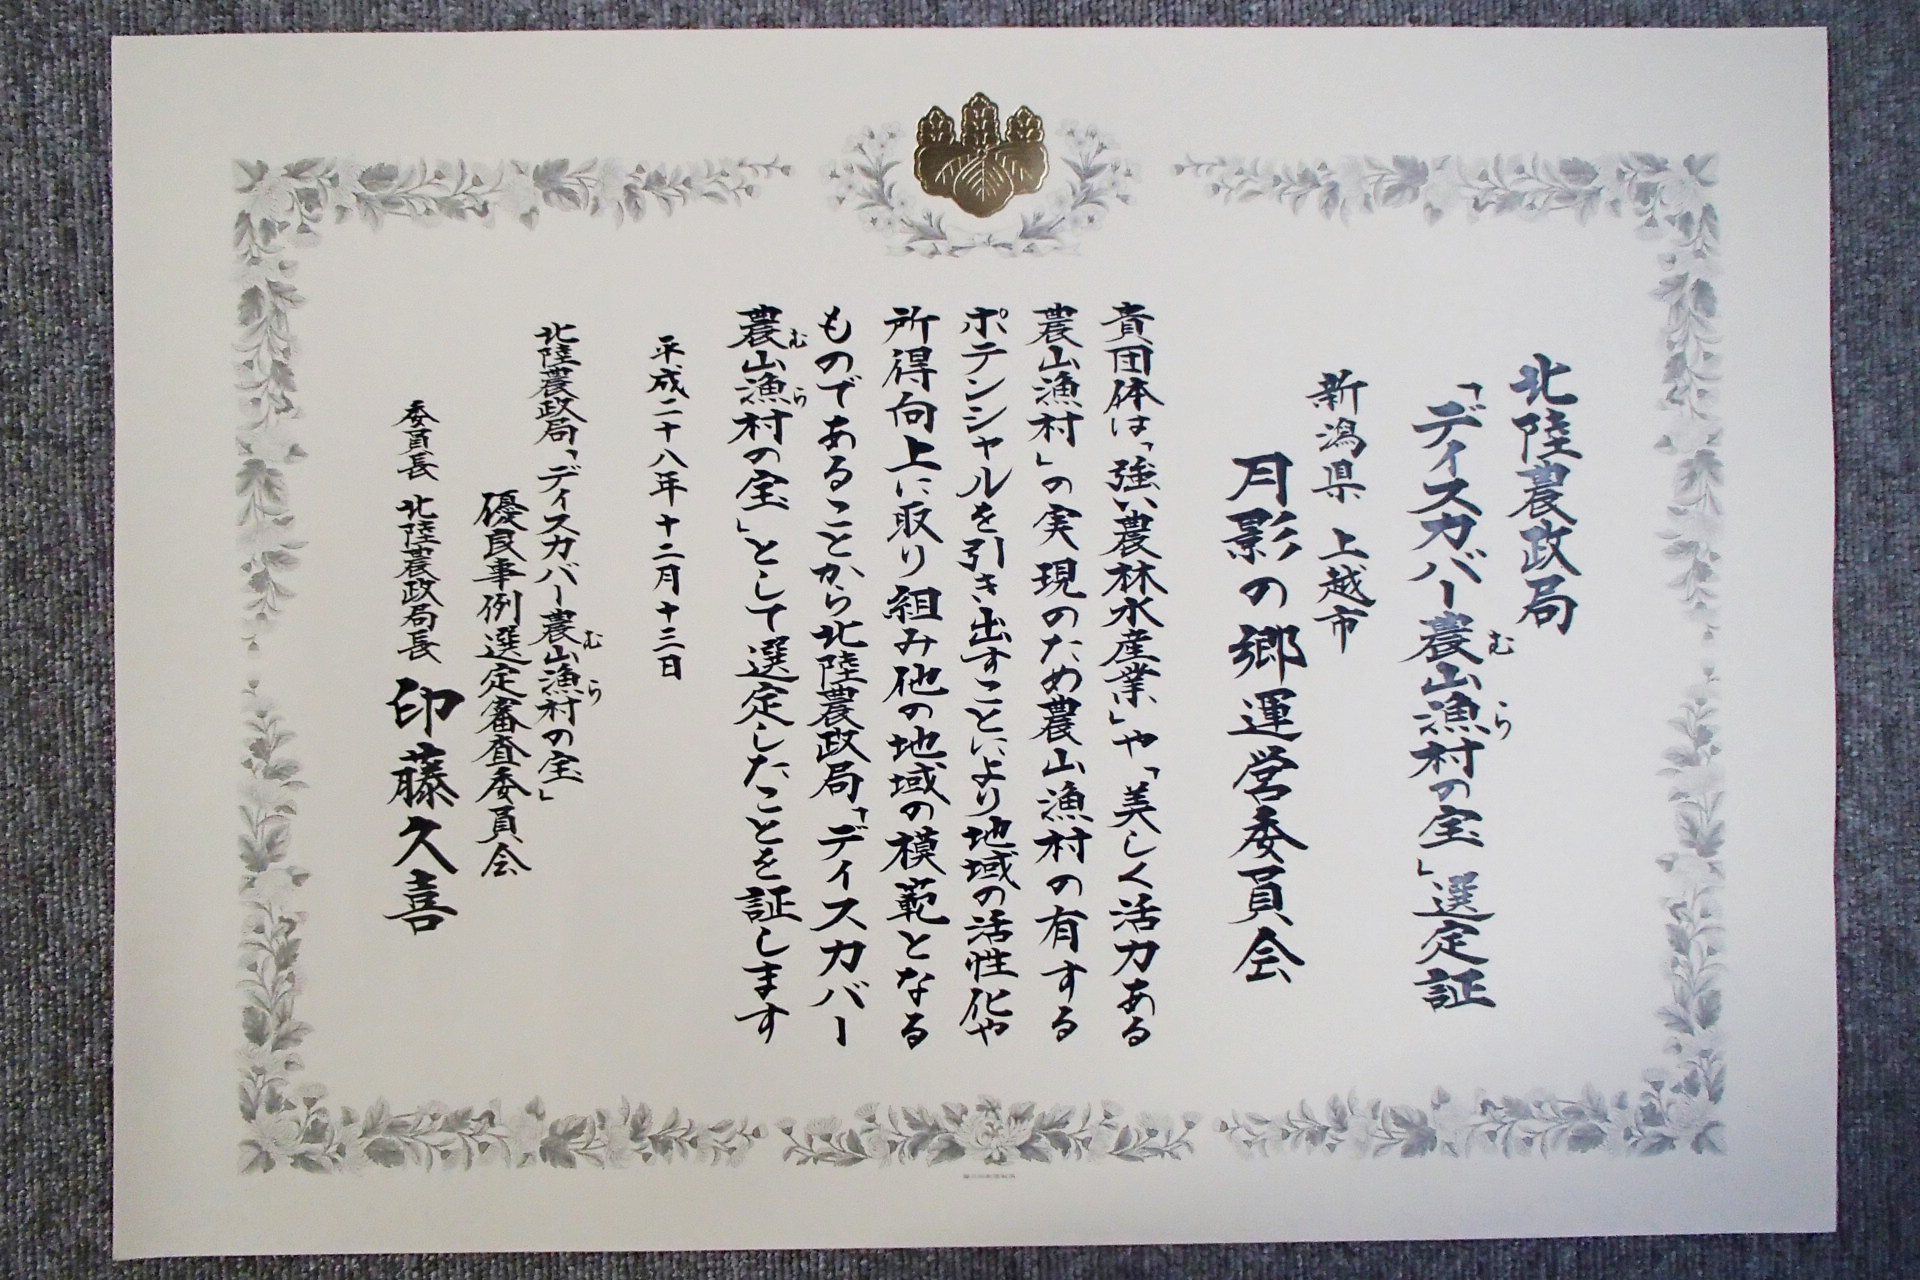 北陸農政局
「ディスカバー農山漁村の宝」選定証
むら
新潟県 上越市
月影の郷運営委員会
貴団体は「強い農林水産業」や「美しく活力ある
農山漁村」の実現のため農山漁村の有する
ポテンシャルを引き出すことにより地域の活性化や
所得向上に取り組み他の地域の模範となる
ものであることから北陸農政局「ディスカバー
農山漁村の宝」として選定したことを証します
むら
平成二十八年十二月十三日
北陸農政局「ディスカバー農山漁村の宝」
むら
優良事例選定審査委員会
委員長 北陸農政局長 印藤久喜